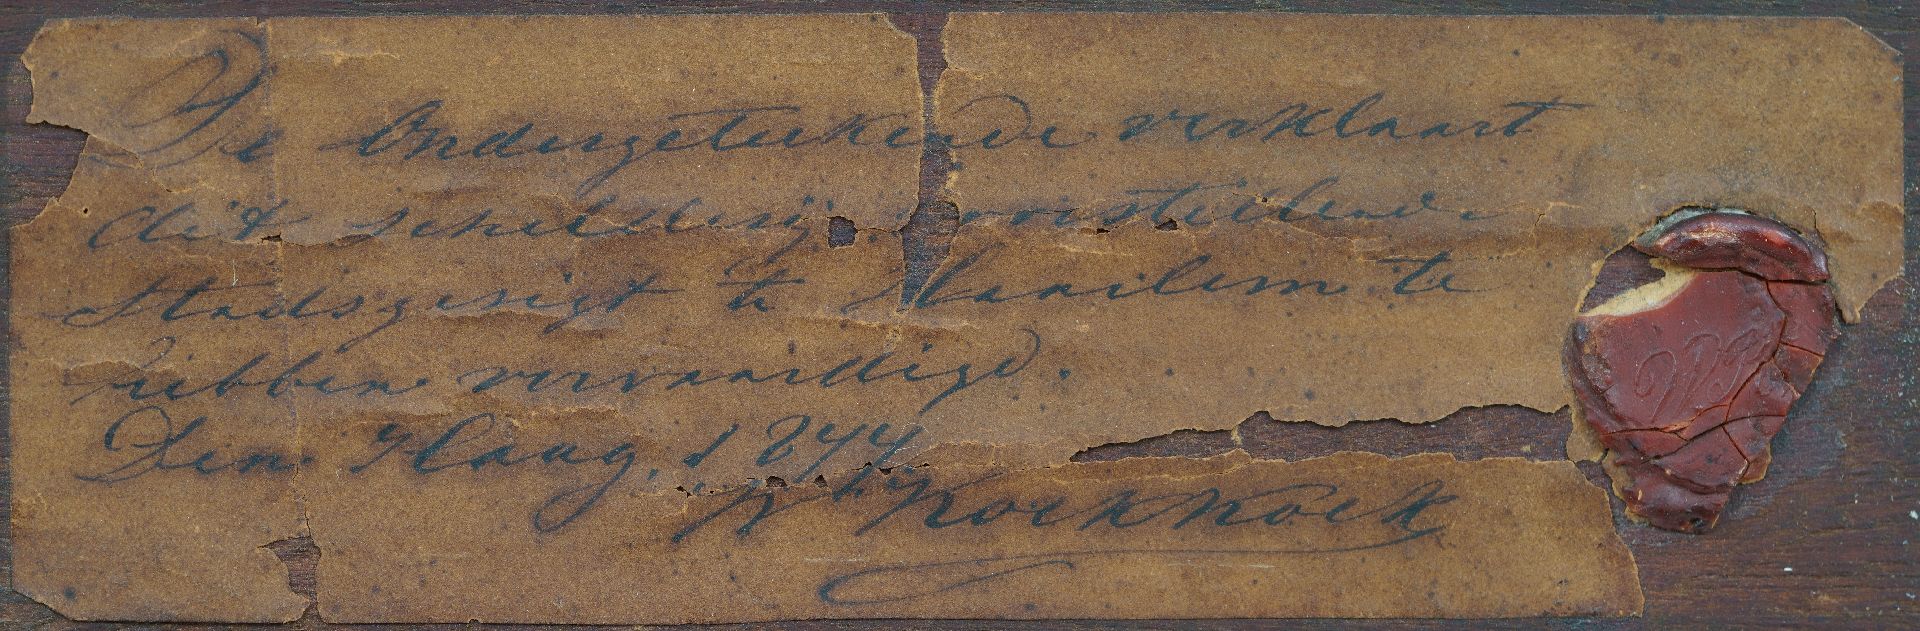 De Ondergeteekende verklaart
dit schilderij voorstellende
Stadsgezigt te Haarlem te
hebben vervaardigd.
Den Haag, 1844.
W Koekkoek
WK